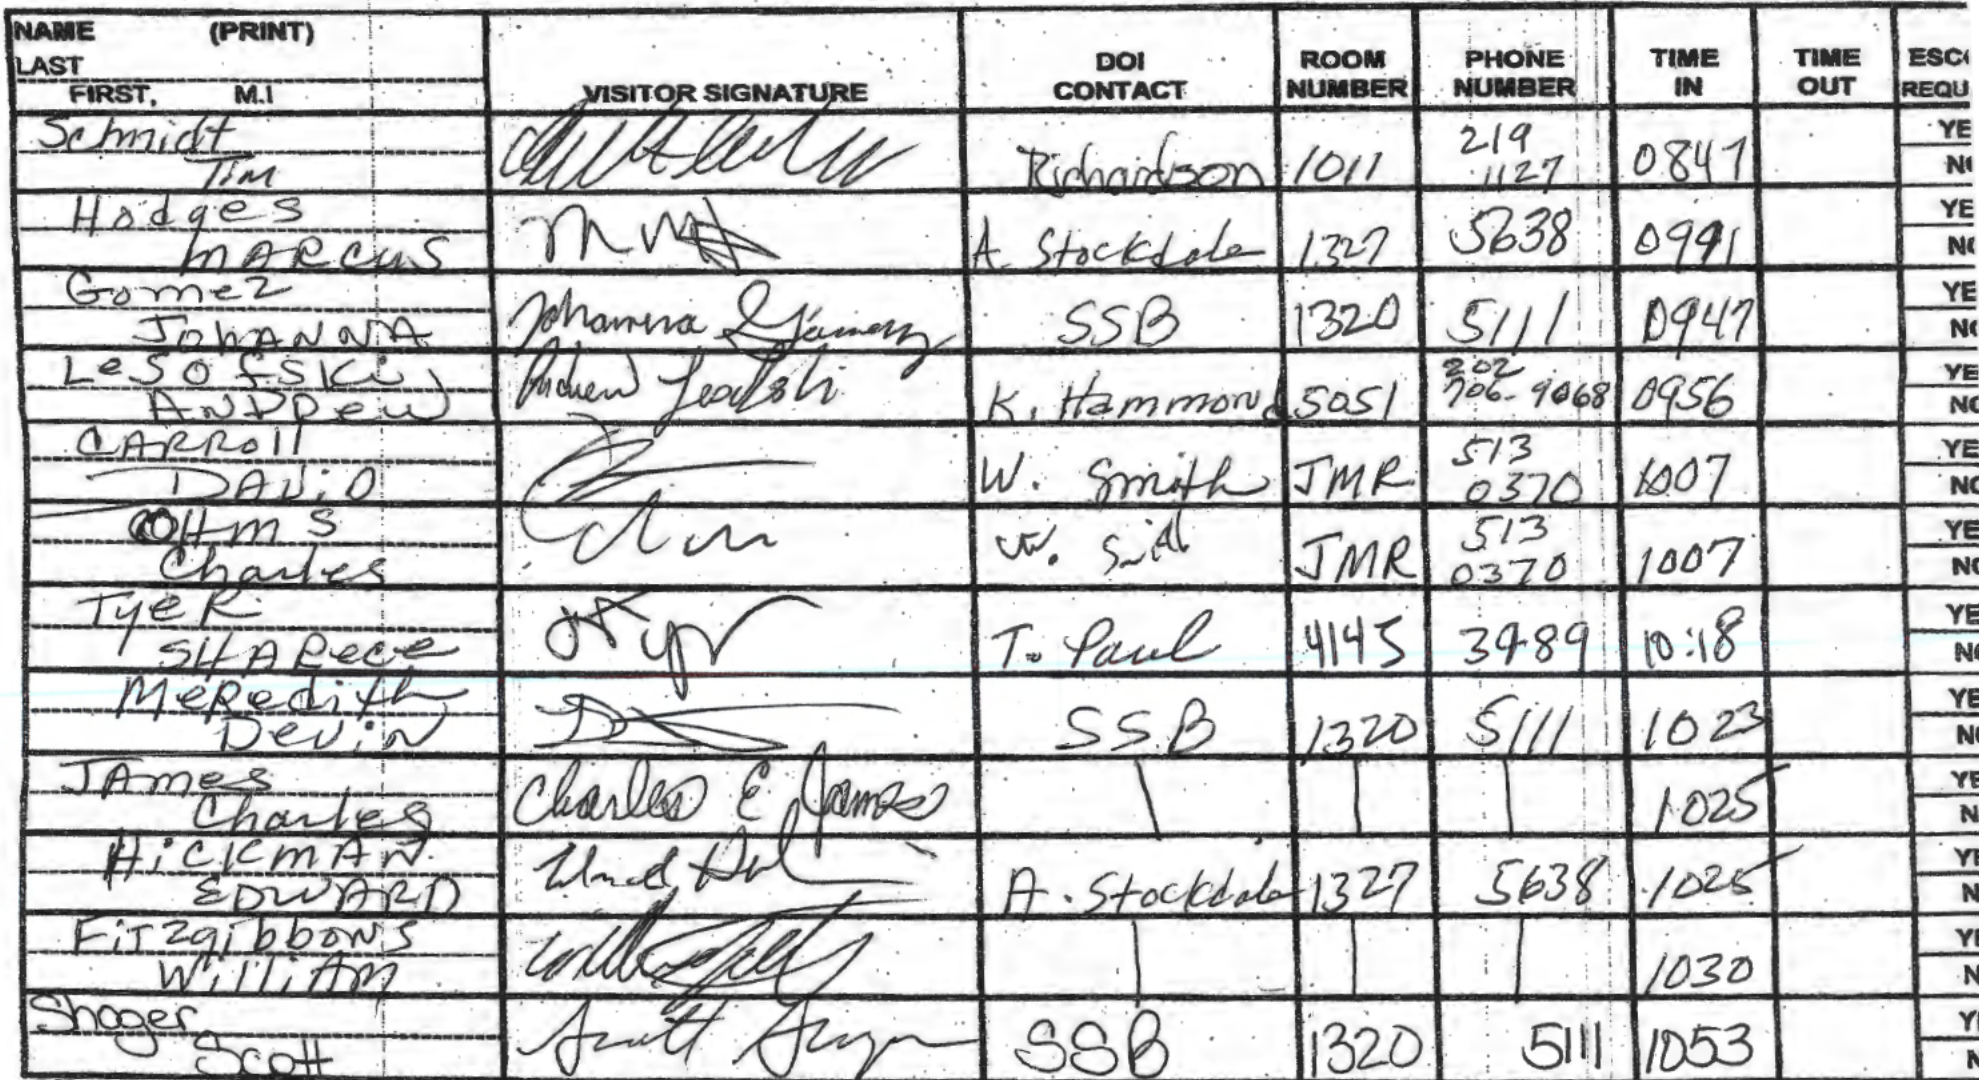 NAME (PRINT)
LAST
FIRST, M.I
VISITOR SIGNATURE
DOI
CONTACT
ROOM
NUMBER
PHONE
NUMBER
TIME
IN
TIME
OUT
ESC
REQU
Schmidt
Tim
Richardson 1011 219
1127 0847
YE
NO
Hodges
MARCUS
A. Stockdale 1327 5638 0941
YE
NO
Gomez
JOHANNA
Johanna Gomez SSB 1320 5111 0947
YE
NO
Lesofski,
ANDREW
Andrew K. Hammond 5051 202
706-9068 0956
YE
NO
CARROll
DAViD
W. Smith JMR 513
0370 1007
YE
NO
OHmS
Charles
W. JMR 513
0370 1007
YE
NO
TyeR
SHARece
T. Paul 4145 3989 10:18
YE
NO
MeRedith
DeviN
SSB 1320 5111 1023
YE
NO
JAmes
Charles
Charles E James 1025
YE
N
HiCKmAN
EDWARD
A. Stockdale 1327 5638 1025
YE
N
FiTzgibboNS
WilliAm
1030
YE
N
Shoger
Scott
Scott SSB 1320 5111 1053
YE
N